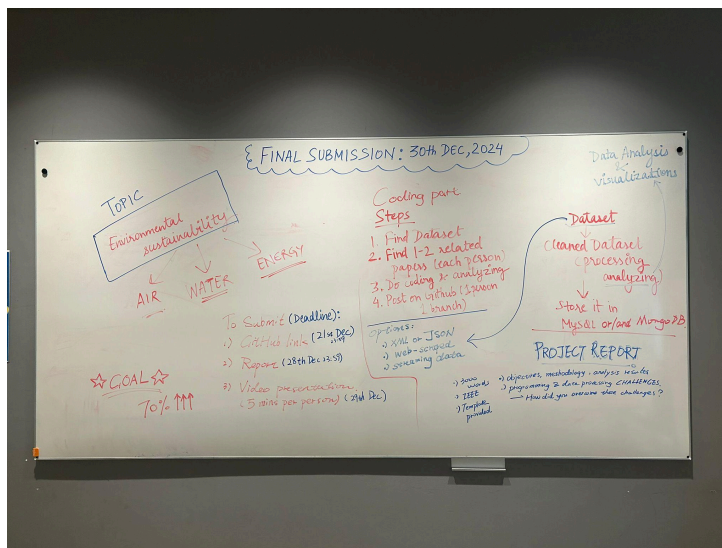 FINAL SUBMISSION: 30th DEC, 2024
TOPIC
Environmental
sustainability
AIR
WATER
ENERGY
To Submit (Deadline):
1) GitHub link (21st Dec)
2) Report (28th Dec 23:59)
3) Video presentation
(5 mins per person) (29th Dec)
☆GOAL☆
70% ↑↑↑
Coding part
Steps
1. Find Dataset
2. Find 1-2 related
papers (each person)
3. Do coding & analyzing
4. Post on Github (1 person
1 branch)
options:
XML or JSON
web-scraped
streaming data
Data Analysis
&
visualizations
Dataset
Cleaned Dataset
(processing
analyzing)
Store it in
MySQL or/and MongoDB
PROJECT REPORT
word
IEEE
Template
provided
objectives, methodology, analysis results
programming & data processing CHALLENGES
→ How did you overcome these challenges?